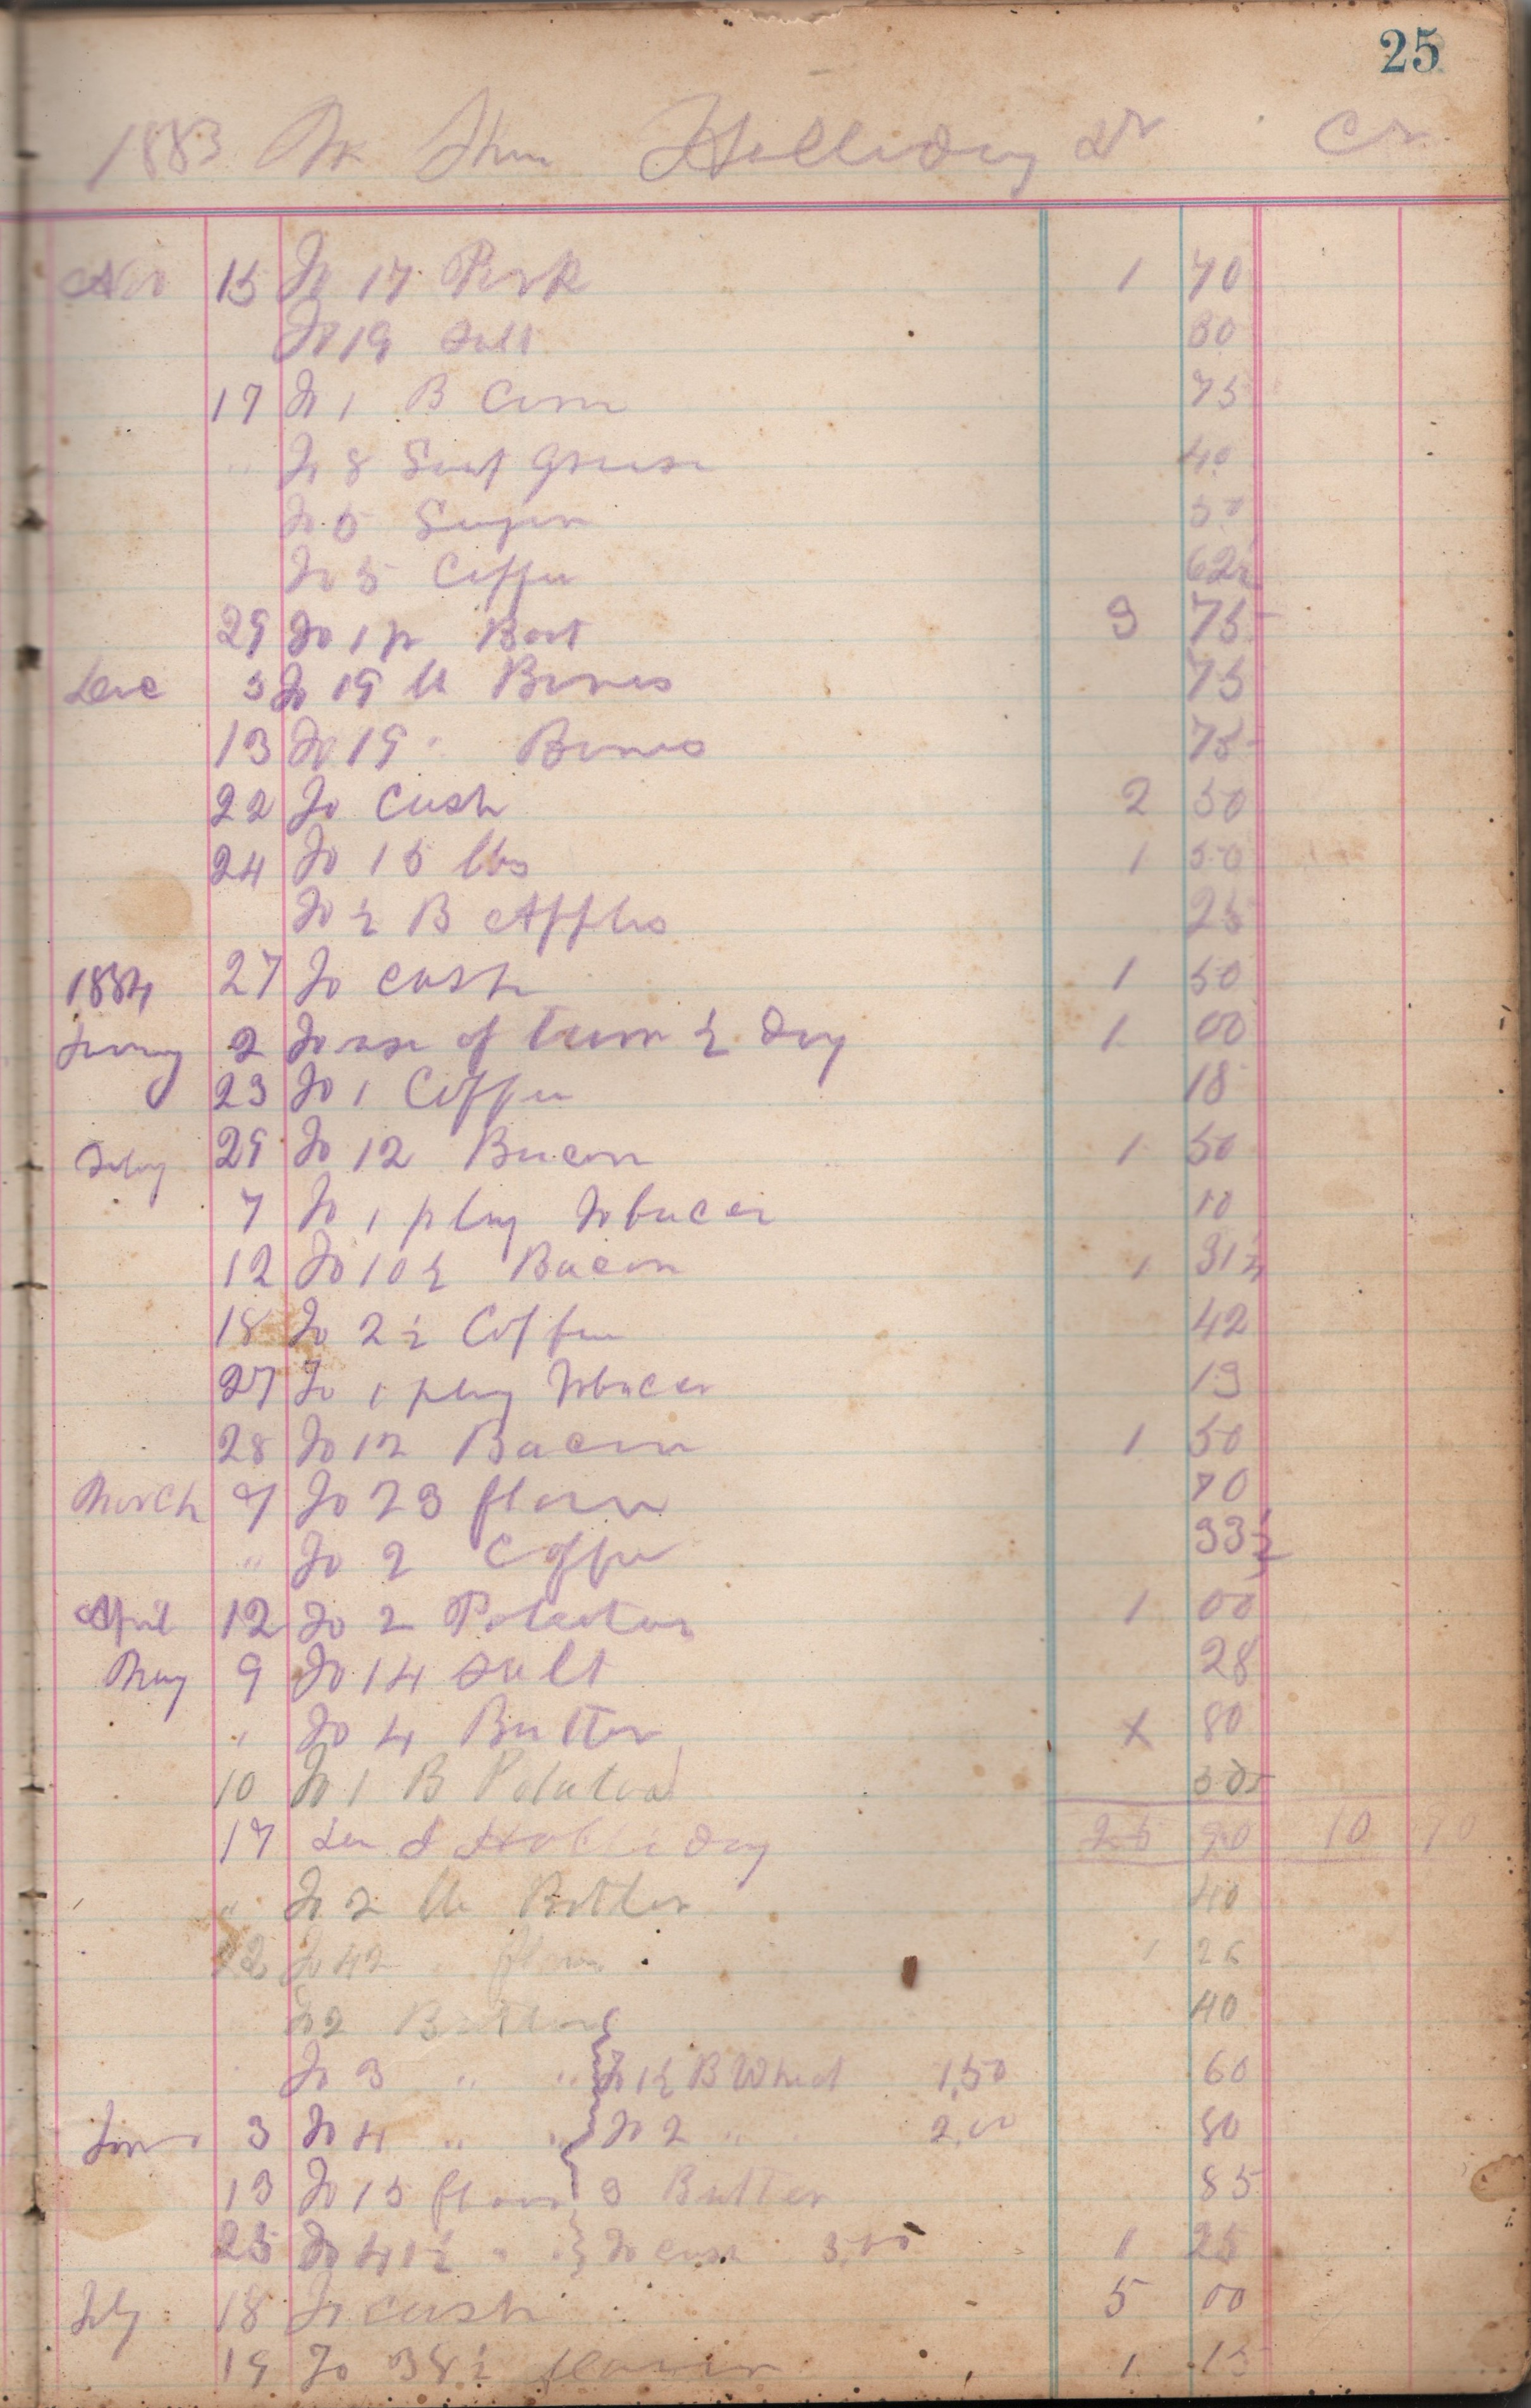 25
1883 Holliday Dr Cr
Nov 15 To 17 Pork 1 70
To 19 Salt 30
17 To 1 B Corn 75
" To 8 Grease 40
To 5 Sugar 50
To 5 Coffee 62½
29 To 1 pr Boot 3 75
Dec 3 To 19 lb Bones 75
13 To 19 " Bones 75
22 To Cash 2 50
24 To 15 lbs 1 50
To ½ B Apples 25
1884 27 To cash 1 50
2 To use of team ½ day 1 00
23 To 1 Coffee 18
29 To 12 Bacon 1 50
7 To 1 plug Tobacco 10
12 To 10½ Bacon 1 31¼
18 To 2½ Coffee 42
27 To 1 plug Tobacco 13
28 To 12 Bacon 1 50
March 7 To 23 flour 70
" To 2 Coffee 33½
April 12 To 2 Potatoes 1 00
May 9 To 14 Salt 28
" To 4 Butter X 80
10 To 1 B Potatoes
17 Holliday 90 10
" To 2 lb Butter 40
To 42 flour 1 26
To 2 Butter 40
To 3 " " To 1½ B Wheat 1.50 60
3 To 4 " " To 2 " 2.00 80
13 To 15 flour 3 Butter 85
25 To 41½ " " To cash 3.00 1 25
July 18 To cash 5 00
19 To 38½ flour 1 15